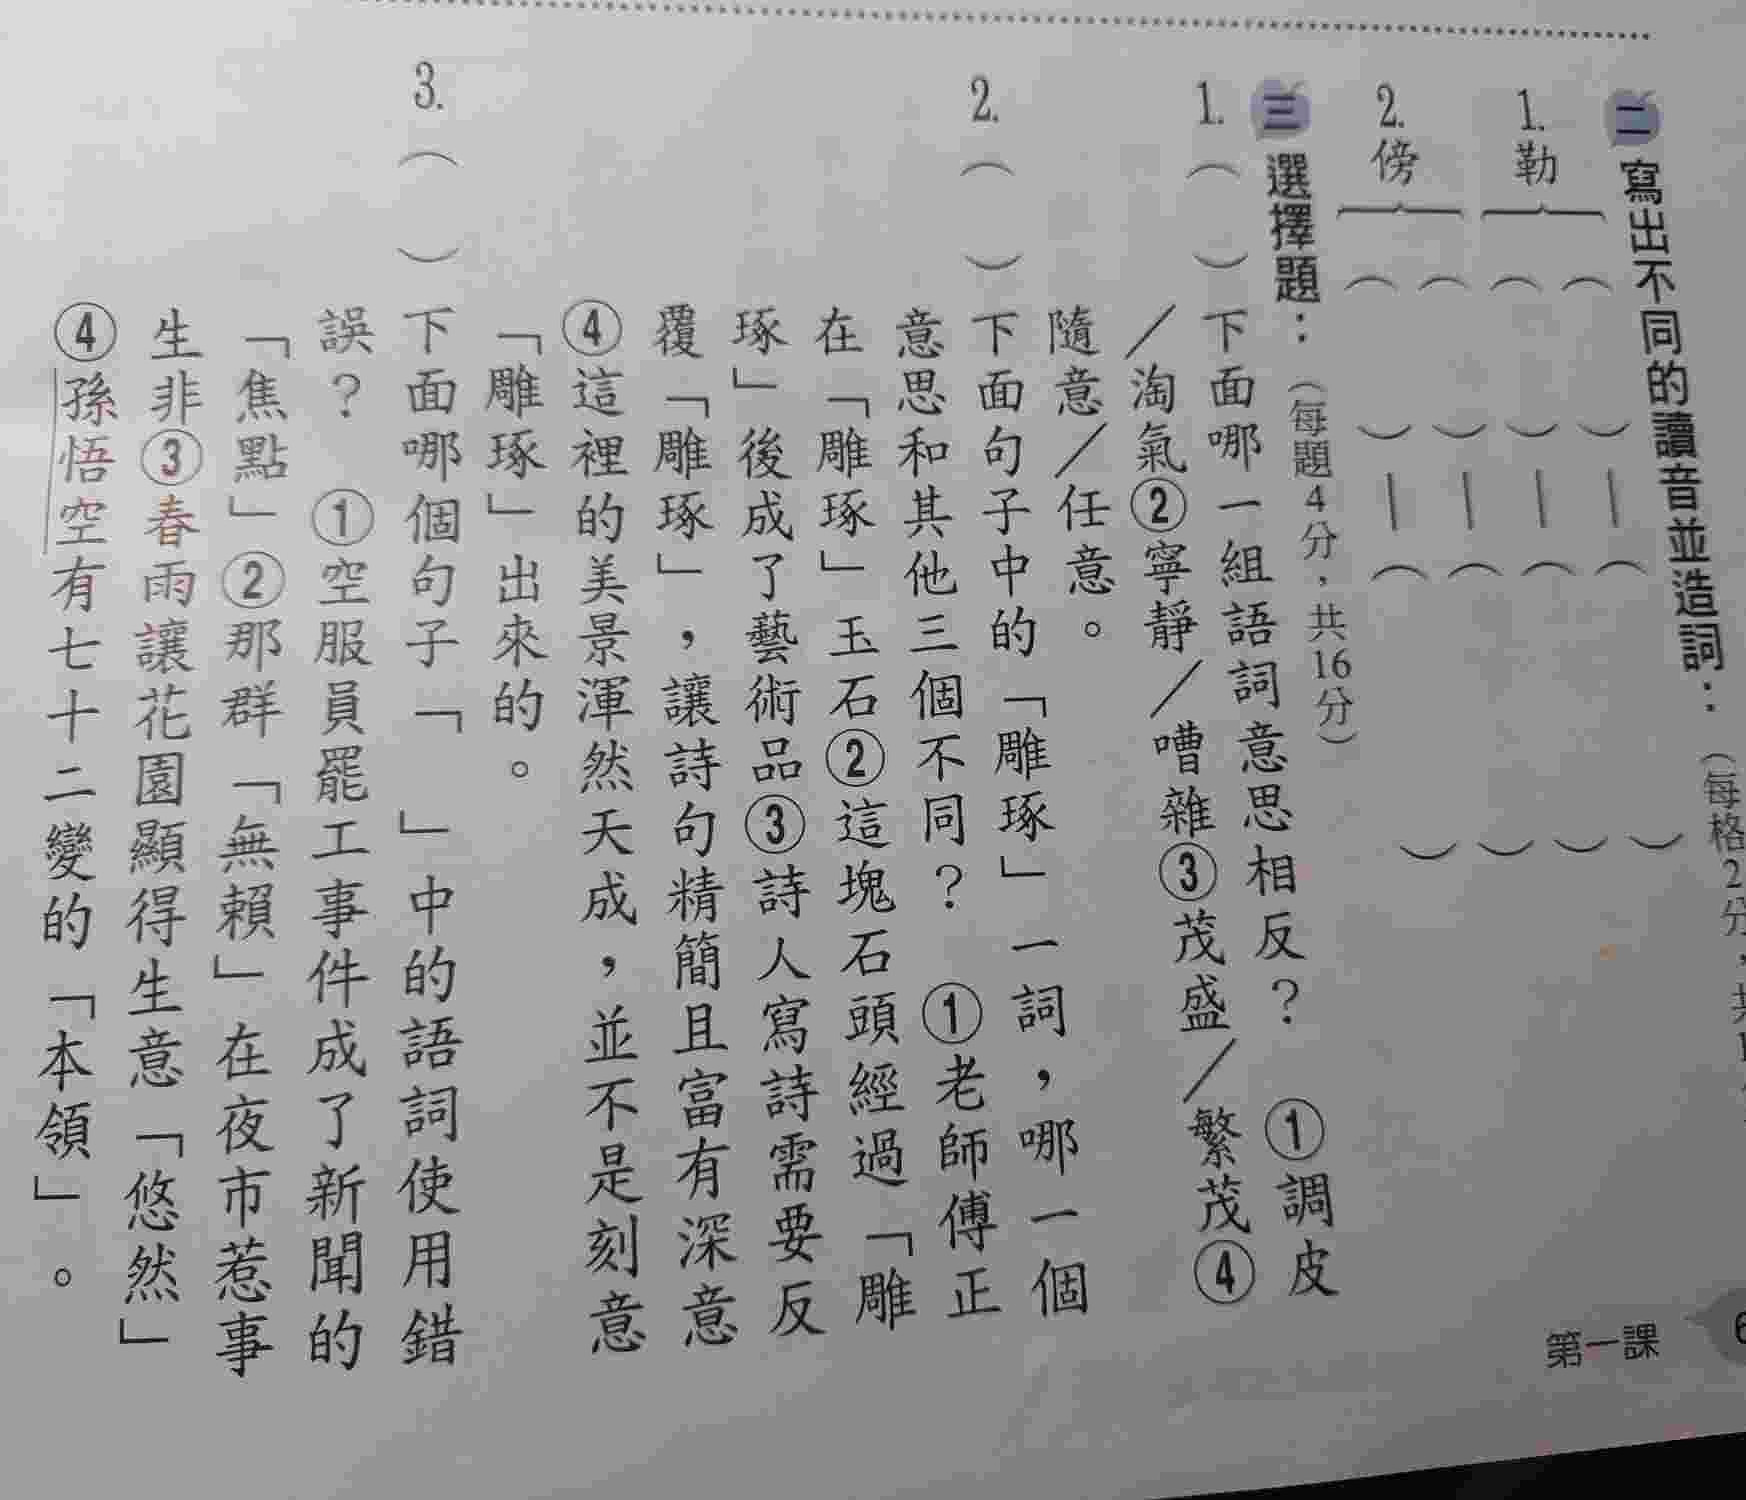 二 寫出不同的讀音並造詞：（每格2分，共
1. 勒 （ ）—（ ）
（ ）—（ ）
2. 傍 （ ）—（ ）
（ ）—（ ）
三 選擇題：（每題4分，共16分）
1.（ ）下面哪一組語詞意思相反？ ①調皮
／淘氣②寧靜／嘈雜③茂盛／繁茂④
隨意／任意。
2.（ ）下面句子中的「雕琢」一詞，哪一個
意思和其他三個不同？ ①老師傅正
在「雕琢」玉石②這塊石頭經過「雕
琢」後成了藝術品③詩人寫詩需要反
覆「雕琢」，讓詩句精簡且富有深意
④這裡的美景渾然天成，並不是刻意
「雕琢」出來的。
3.（ ）下面哪個句子「 」中的語詞使用錯
誤？ ①空服員罷工事件成了新聞的
「焦點」②那群「無賴」在夜市惹事
生非③春雨讓花園顯得生意「悠然」
④孫悟空有七十二變的「本領」。
第一課
6